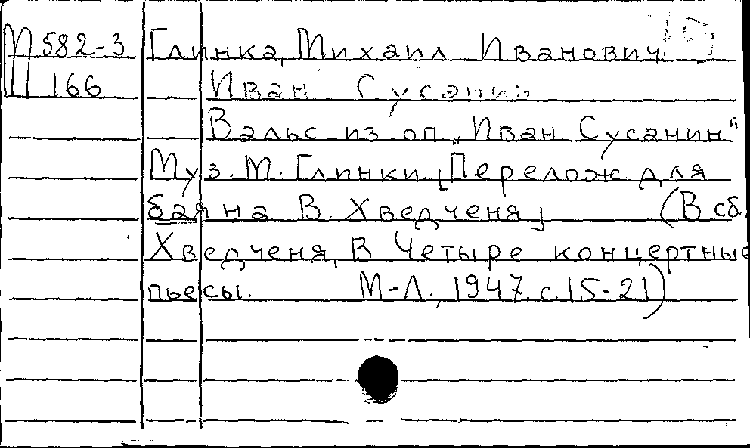 М 582-3 Глинка, Михаил Иванович
П 166 Иван Сусанин
Вальс из оп. „Иван Сусанин"
Муз. М. Глинки [Перелож для
баяна В. Хведченя] (В сб.
Хведченя, В Четыре концертные
пьесы. М-Л., 1947. с. 15-21)